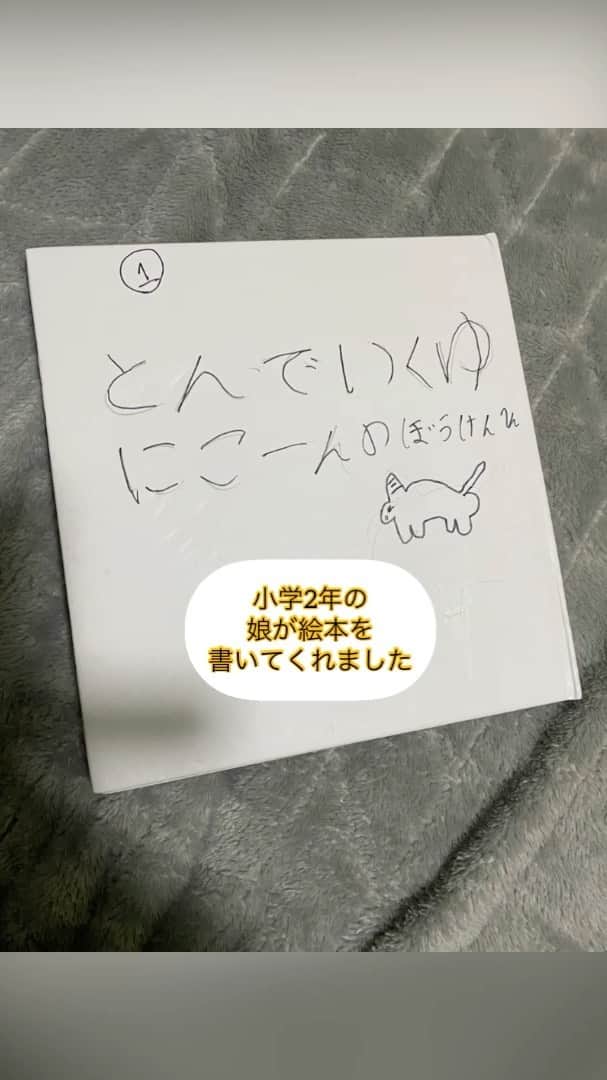 1
とんでいくゆ
にこーんのぼうけん
小学2年の
娘が絵本を
書いてくれました